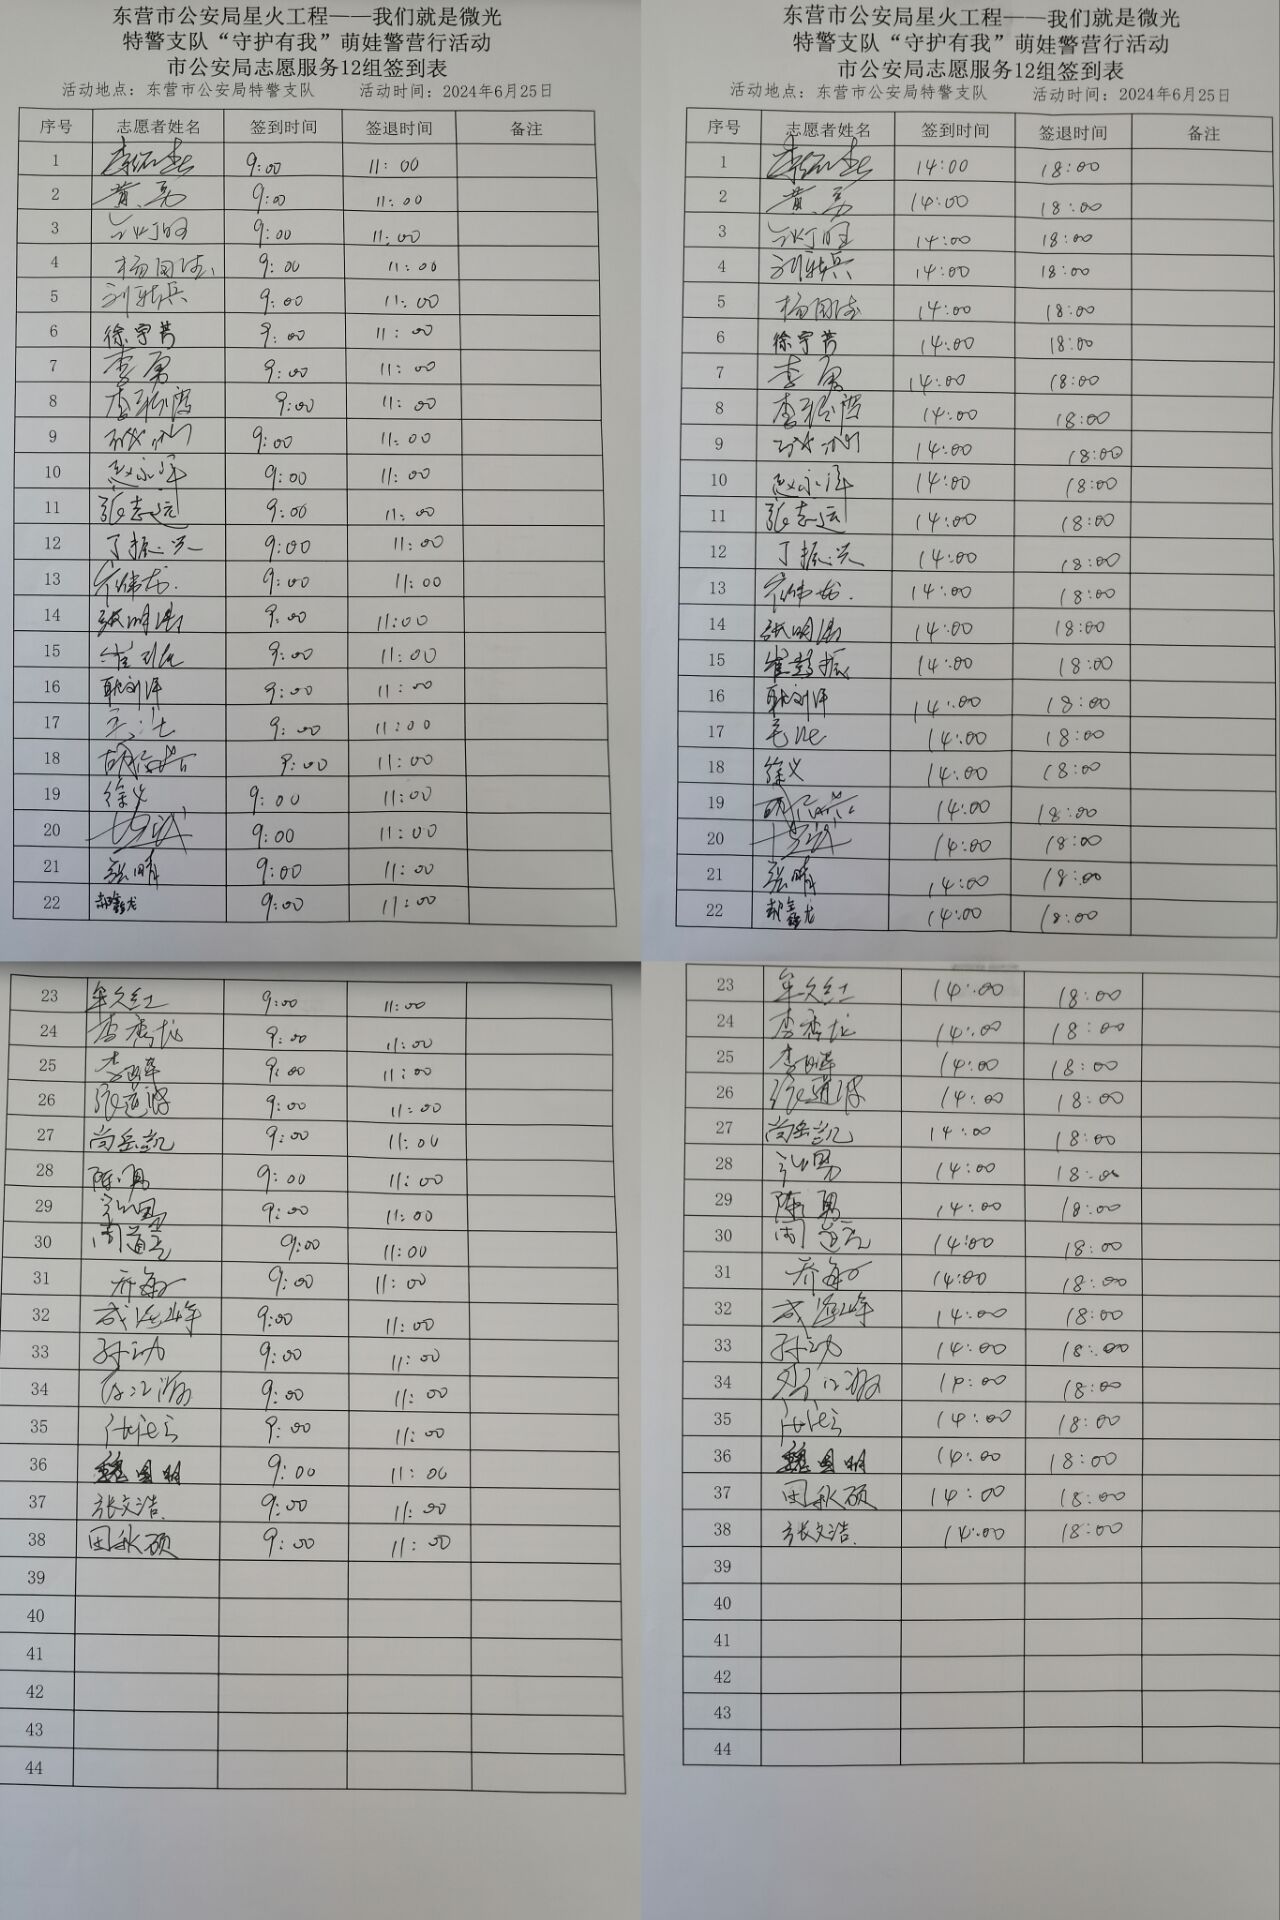 东营市公安局星火工程——我们就是微光
特警支队“守护有我”萌娃警营行活动
市公安局志愿服务12组签到表
活动地点：东营市公安局特警支队 活动时间：2024年6月25日
序号 志愿者姓名 签到时间 签退时间 备注
1 9:00 11:00
2 黄勇 9:00 11:00
3 9:00 11:00
4 9:00 11:00
5 9:00 11:00
6 徐宇芳 9:00 11:00
7 李勇 9:00 11:00
8 9:00 11:00
9 9:00 11:00
10 9:00 11:00
11 张志远 9:00 11:00
12 丁振兴 9:00 11:00
13 9:00 11:00
14 9:00 11:00
15 9:00 11:00
16 耿刘洋 9:00 11:00
17 9:00 11:00
18 9:00 11:00
19 徐义 9:00 11:00
20 9:00 11:00
21 张晴 9:00 11:00
22 郝鑫龙 9:00 11:00
23 牟久红 9:00 11:00
24 李秀龙 9:00 11:00
25 9:00 11:00
26 9:00 11:00
27 尚岳凯 9:00 11:00
28 陈勇 9:00 11:00
29 9:00 11:00
30 9:00 11:00
31 9:00 11:00
32 成海峰 9:00 11:00
33 9:00 11:00
34 9:00 11:00
35 9:00 11:00
36 魏国明 9:00 11:00
37 张文浩 9:00 11:00
38 田秋硕 9:00 11:00
39
40
41
42
43
44
东营市公安局星火工程——我们就是微光
特警支队“守护有我”萌娃警营行活动
市公安局志愿服务12组签到表
活动地点：东营市公安局特警支队 活动时间：2024年6月25日
序号 志愿者姓名 签到时间 签退时间 备注
1 14:00 18:00
2 黄勇 14:00 18:00
3 14:00 18:00
4 14:00 18:00
5 14:00 18:00
6 徐宇芳 14:00 18:00
7 李勇 14:00 18:00
8 14:00 18:00
9 14:00 18:00
10 14:00 18:00
11 张志远 14:00 18:00
12 丁振兴 14:00 18:00
13 14:00 18:00
14 14:00 18:00
15 崔彭振 14:00 18:00
16 耿刘洋 14:00 18:00
17 14:00 18:00
18 徐义 14:00 18:00
19 14:00 18:00
20 14:00 18:00
21 张晴 14:00 18:00
22 郝鑫龙 14:00 18:00
23 牟久红 14:00 18:00
24 李秀龙 14:00 18:00
25 14:00 18:00
26 14:00 18:00
27 尚岳凯 14:00 18:00
28 14:00 18:00
29 陈勇 14:00 18:00
30 14:00 18:00
31 14:00 18:00
32 成海峰 14:00 18:00
33 14:00 18:00
34 14:00 18:00
35 14:00 18:00
36 魏国明 14:00 18:00
37 田秋硕 14:00 18:00
38 张文浩 14:00 18:00
39
40
41
42
43
44